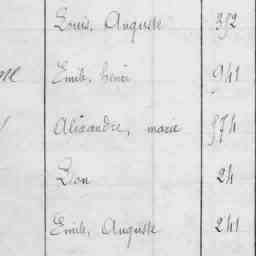 Louis, Auguste 352
Emile, henri 941
Alexandre, marie 574
Léon 24
Emile, Auguste 241